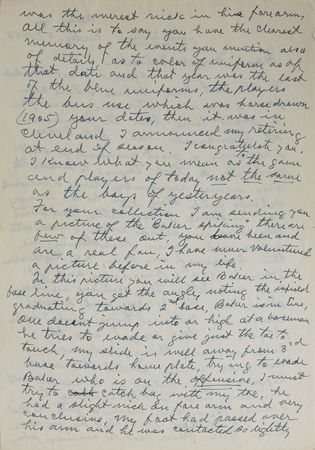 was the merest nick in his forearm,
all this is to say, you have the clearest
memory of the events you mention also
of details, as to color of uniform as of
that date and that year was the last
of the blue uniforms, the players
the bus use which was horse drawn
(1905) your dates, then it was in
Cleveland I announced my retiring
at end of season. I congratulate you
I know what you mean as the game
and players of today not the same
as the boys of yesteryears.
For your collection I am sending you
a picture of the Baker spiking, there are
few of these out, you have been and
are a real fan, I have never volunteered
a picture before in my life.
In this picture you will see Baker in the
base line, you get the angle, noting the infield
graduating towards 2nd base, Baker is in line,
one doesnt jump into or high at a baseman
he tries to evade or give just the toe to
touch, my slide is well away from 3rd
base towards home plate, trying to evade
Baker who is on the offensive, I must
try to catch bag with my toe, he
had a slight nick on forearm and very
conclusive, my foot had passed over
his arm and he was contacted so lightly